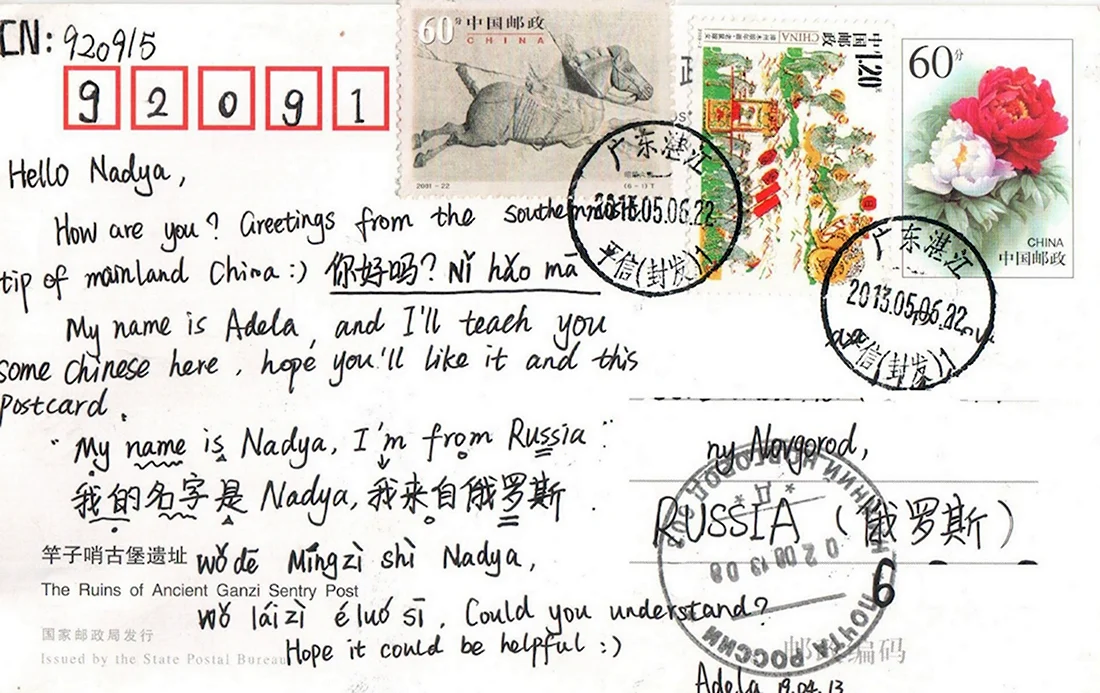 CN: 920915
9 2 0 9 1
60分 中国邮政
CHINA
2001-22 (6-1)T
中国邮政 CHINA
1.20元
60分
CHINA
中国邮政
广东湛江
2013.05.06.22
平信(封发)1
广东湛江
2013.05.06.22
平信(封发)1
Hello Nadya,
How are you? Greetings from the southernmost
tip of mainland China:) 你好吗? Nǐ hǎo mā
My name is Adela, and I'll teach you
some Chinese here, hope you'll like it and this
postcard.
"My name is Nadya, I'm from Russia"
我的名字是 Nadya, 我来自俄罗斯
wǒ dē Míngzì shì Nadya,
wǒ láizì é luó sī. Could you understand?
Hope it could be helpful :)
Adela 19.04.13
竿子哨古堡遗址
The Ruins of Ancient Ganzi Sentry Post
国家邮政局发行
Issued by the State Postal Bureau
ny Novgorod,
RUSSIA (俄罗斯)
6
НИЖНИЙ НОВГОРОД
* Д *
ПОЧТА РОССИИ
邮政编码